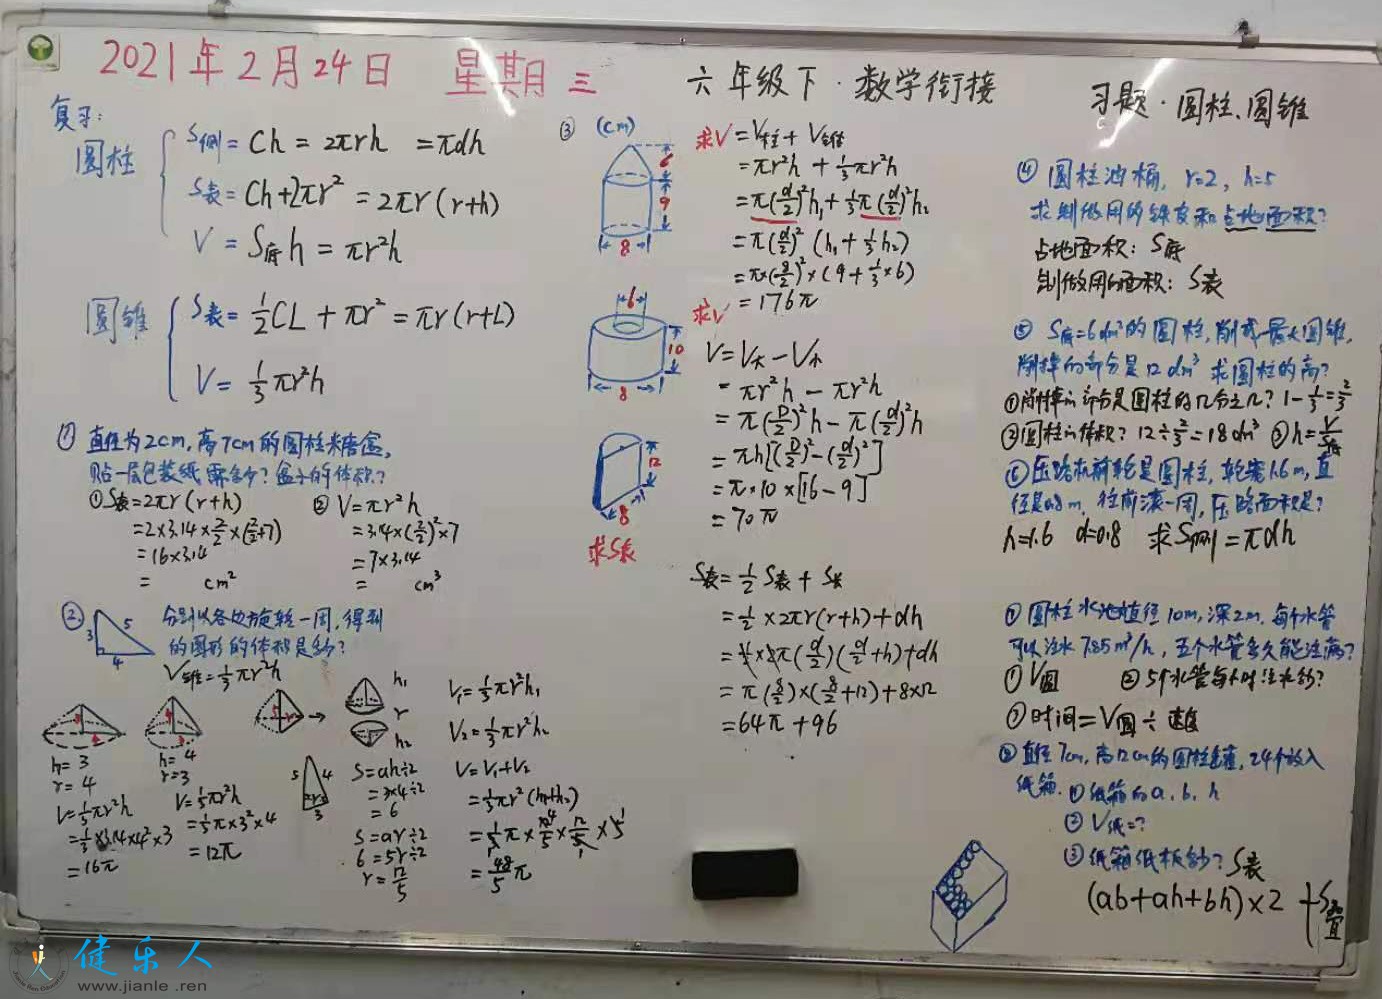 2021年2月24日 星期三
六年级下·数学衔接
习题·圆柱、圆锥
复习:
圆柱
S侧= Ch = 2πrh =πdh
S表= Ch+2πr² = 2πr(r+h)
V = S底h = πr²h
圆锥
S表= 1/2CL + πr² = πr(r+L)
V = 1/3πr²h
① 直径为2cm,高7cm的圆柱米糖盒,
贴一层包装纸需多少?盒子的体积?
①S表=2πr(r+h)
=2×3.14×2/2×(2/2+7)
=16×3.14
= cm²
② V=πr²h
=3.14×(2/2)²×7
=7×3.14
= cm³
②
3
5
4
分别以各边旋转一周,得到
的图形的体积是多少?
V锥=1/3πr²h
h=3
r=4
V=1/3πr²h
=1/3×3.14×4²×3
=16π
h=4
r=3
V=1/3πr²h
=1/3π×3²×4
=12π
h₁
r
h₂
5
4
r
3
S=ah÷2
=3×4÷2
=6
S=ar÷2
6=5r÷2
r=12/5
V₁=1/3πr²h₁
V₂=1/3πr²h₂
V=V₁+V₂
=1/3πr²(h₁+h₂)
=1/3π×12/5×12/5×5
=48/5π
③ (cm)
6
9
8
求V = V柱+ V锥
=πr²h +1/3πr²h
=π(d/2)²h₁+1/3π(d/2)²h₂
=π(d/2)²(h₁+1/3h₂)
=π×(8/2)²×(9+1/3×6)
=176π
6
10
8
求V
V=V大-V小
=πr²h-πr²h
=π(D/2)²h-π(d/2)²h
=πh[(D/2)²-(d/2)²]
=π×10×[16-9]
=70π
12
8
求S表
S表=1/2S表+S长
=1/2×2πr(r+h)+dh
=1/2×2π(d/2)(d/2+h)+dh
=π(8/2)×(8/2+12)+8×12
=64π+96
④ 圆柱油桶, r=2, h=5
求制做用的铁皮和占地面积?
占地面积: S底
制做用的面积: S表
⑤ S底=6dm²的圆柱,削成一最大圆锥,
削掉的部分是12dm³ 求圆柱的高?
①削掉的部分是圆柱的几分之几? 1-1/3=2/3
②圆柱的体积? 12÷2/3=18dm³ ③h=V/S底
⑥压路机前轮是圆柱,轮宽1.6m,直
径是0.8m,往前滚一周,压路面积是?
h=1.6 d=0.8 求S侧=πdh
⑦ 圆柱水池直径10m,深2m,每个水管
可以注水7.85m³/h,五个水管多久能注满?
①V圆 ②5个水管每小时注水多少?
③时间=V圆÷速度
⑧直径7cm,高12cm的圆柱罐,24个放入
纸箱. ①纸箱的a、b、h
②V纸=?
③纸箱纸板多少?S表
(ab+ah+bh)×2 +S叠
健乐人
www.jianle.ren